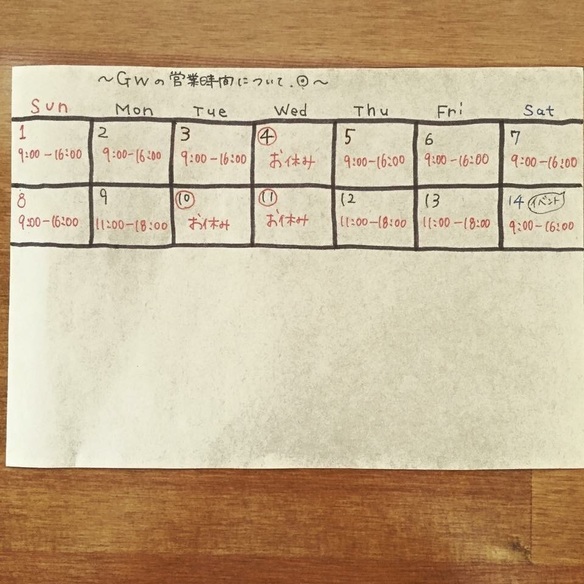 〜GWの営業時間について.◎〜
Sun Mon Tue Wed Thu Fri Sat
1 2 3 4 5 6 7
9:00-16:00 9:00-16:00 9:00-16:00 お休み 9:00-16:00 9:00-16:00 9:00-16:00
8 9 10 11 12 13 14 イベント
9:00-16:00 11:00-18:00 お休み お休み 11:00-18:00 11:00-18:00 9:00-16:00